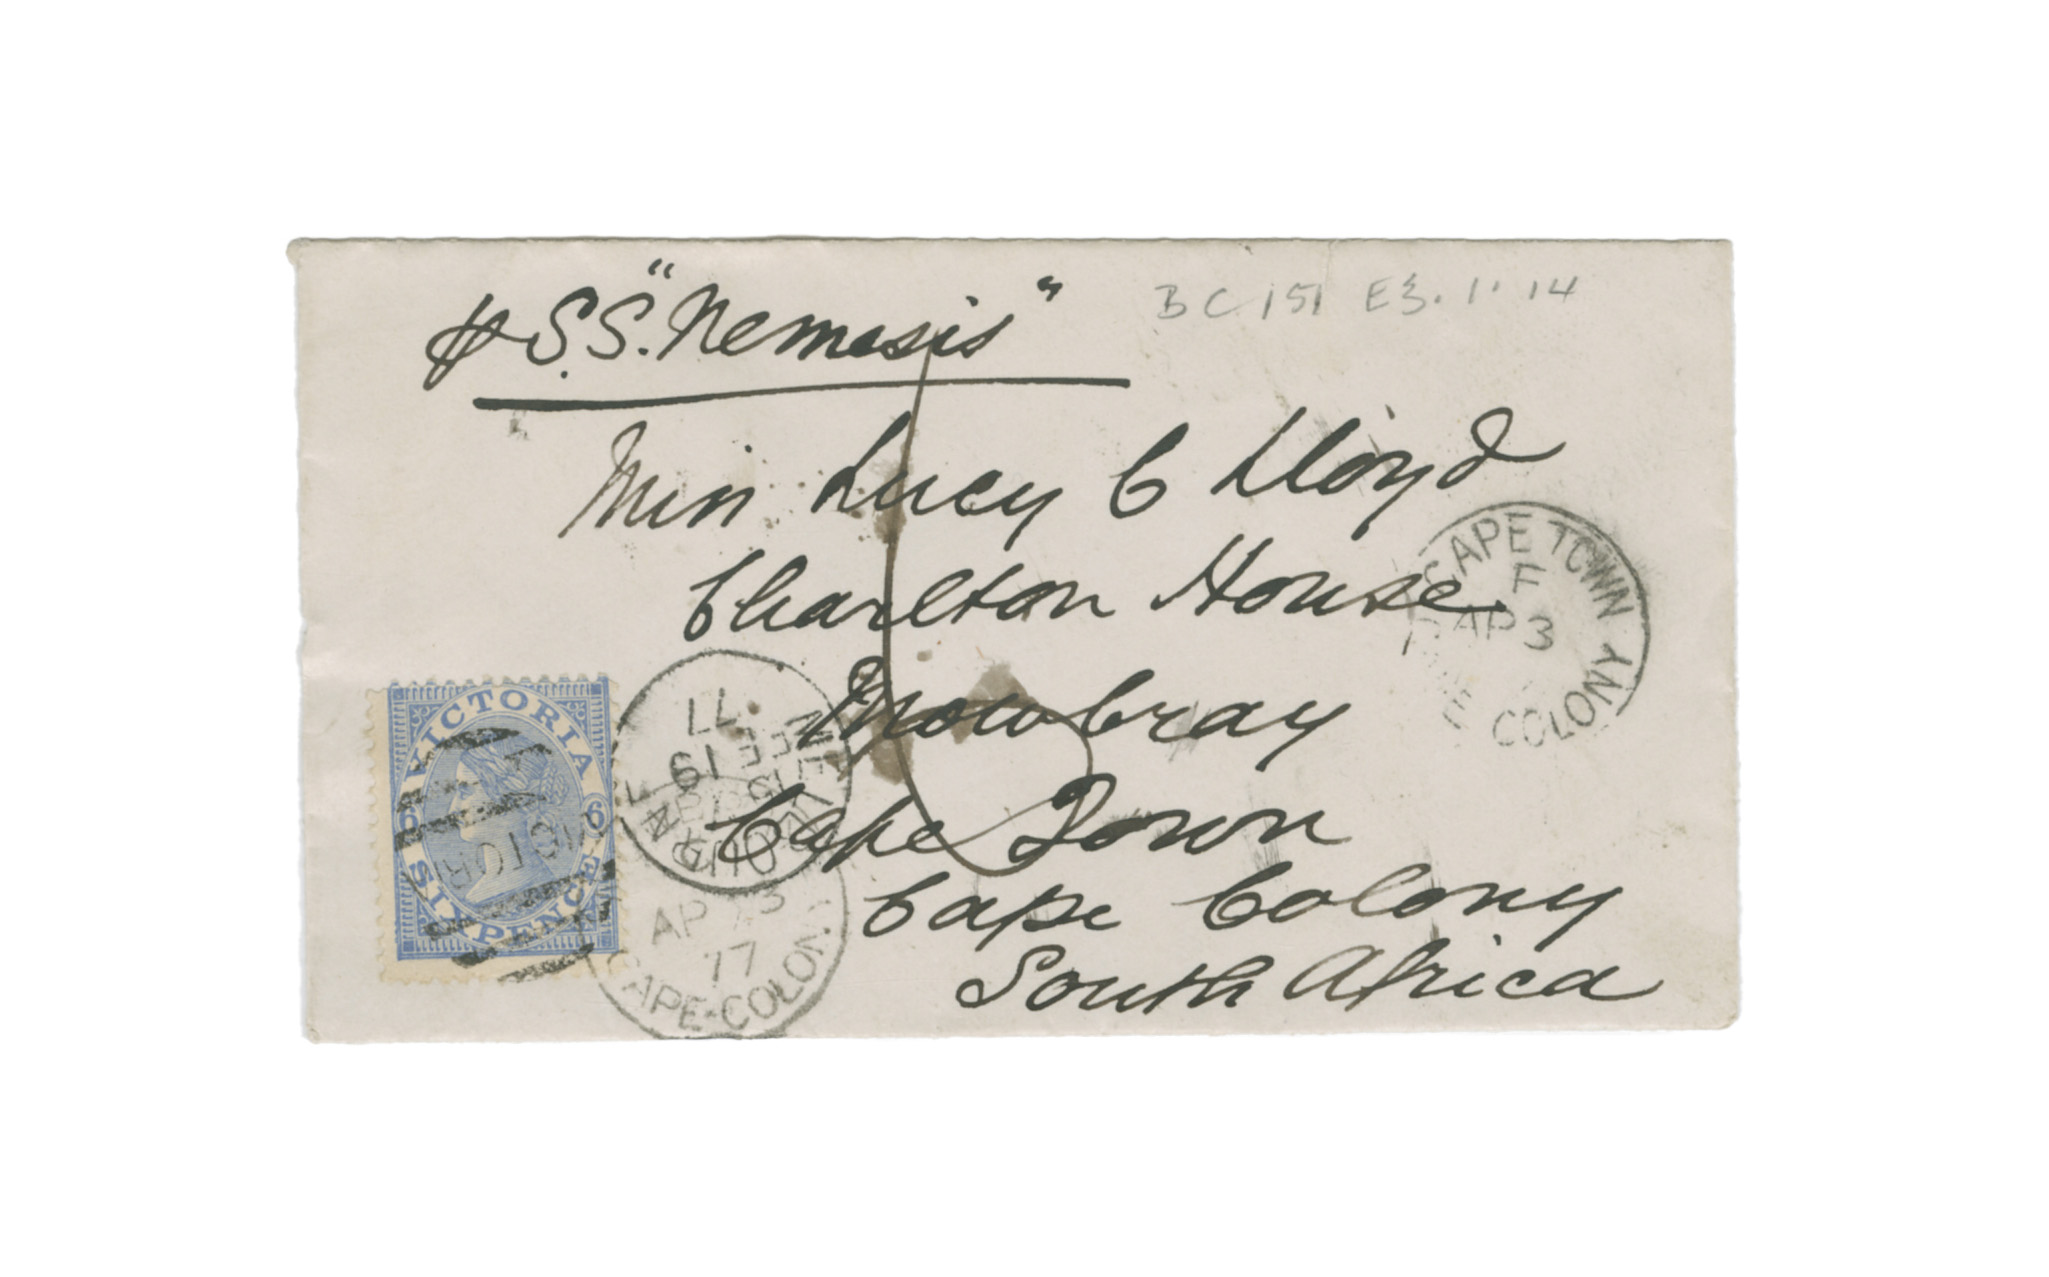 ℘ S.S. "Nemesis"
BC 151 E3.1.14
Miss Lucy C Lloyd
Charlton House
Mowbray
Cape Town
Cape Colony
South Africa
CAPE TOWN
F
AP 3
COLONY
VICTORIA
6 6
SIX PENCE
VICTORI
MELBOURNE
FE 19
77
AP 3
77
CAPE COLONY